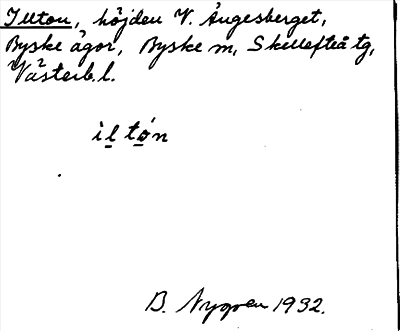 Illton, höjden V. Ängesberget,
Byske ägor, Byske sn, Skellefteå tg,
Västerb. l.
ịḷtọ́n
B. Nygren 1932.